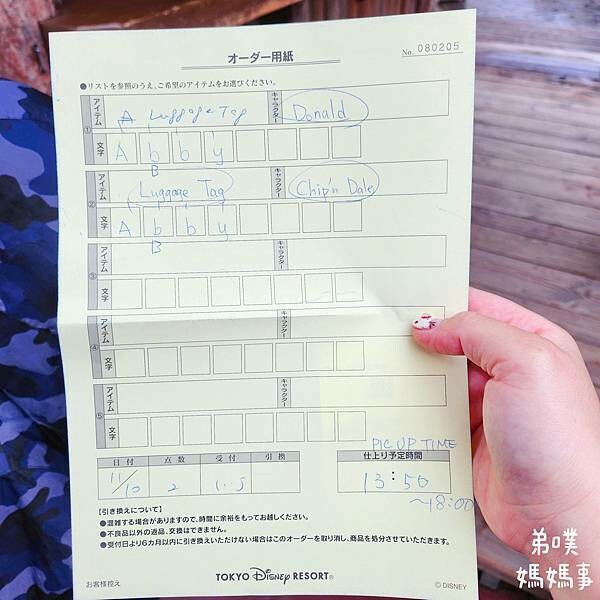 オーダー用紙
No. 080205
●リストを参照のうえ、ご希望のアイテムをお選びください。
① アイテム A Luggage Tag キャラクター Donald
文字 A b b y
B
② アイテム Luggage Tag キャラクター Chip'n Dale
文字 A b b y
B
③ アイテム キャラクター
文字
④ アイテム キャラクター
文字
⑤ アイテム キャラクター
文字
PIC UP TIME
日付 点数 受付 引換 仕上り予定時間
11/10 2 13:50
~18:00
【引き換えについて】
●混雑する場合がありますので、時間に余裕をもってお越しください。
●不良品以外の返品、交換はできません。
●受付日より6カ月以内に引き換えいただけない場合はこのオーダーを取り消し、商品を処分させていただきます。
お客様控え
TOKYO Disney RESORT®
© DISNEY
弟噗
媽媽事